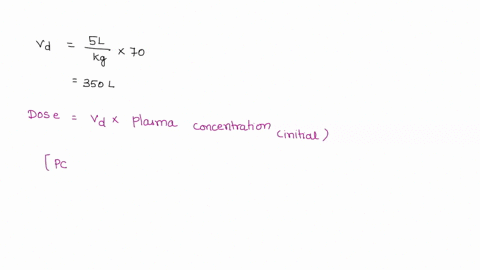 Vd = 5L/kg × 70
= 350 L
Dose = Vd × plasma concentration (initial)
[ PC